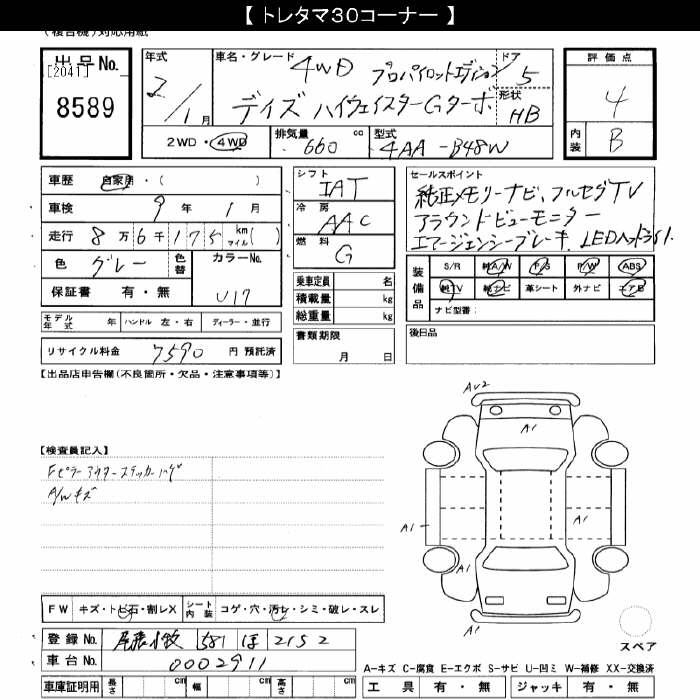 【 トレタマ30コーナー 】
(複合機)対応用紙
出品No.
[2041]
8589
年式
2/1月
車名・グレード
4WD プロパイロットエディション
デイズ ハイウェイスターGターボ
ドア
5
形状
HB
2WD・4WD
排気量
660 cc
型式
4AA-B48W
評価点
4
内装
B
車歴 自家用・( )
車検 9年 1月
走行 8万6千175 km マイル( )
色 グレー 色替
カラーNo.
U17
保証書 有・無
シフト
IAT
冷房
AAC
燃料
G
乗車定員 名
積載量 kg
総重量 kg
書類期限
月 日
セールスポイント
純正メモリーナビ、フルセグTV
アラウンドビューモニター
エマージェンシーブレーキ、LEDヘッドライト
装備品
S/R 純A/W P/S P/W ABS
純TV 純ナビ 革シート 外ナビ エアB
ナビ型番:
後日品
モデル年式 年 ハンドル 左・右 ディーラー・並行
リサイクル料金 7590 円 預託済
【出品店申告欄(不良箇所・欠品・注意事項等)】
【検査員記入】
Fピラーアウターステッカーハゲ
A/Wキズ
AU2
A1
A1
A1
A1
FW キズ・トビ石・割レX
シート内装 コゲ・穴・汚レ・シミ・破レ・スレ
登録No. 尾張小牧 581 ほ 2152
車台No. 0002911
車庫証明用 長さ cm 幅 cm 高さ cm
スペア
A-キズ C-腐食 E-エクボ S-サビ U-凹ミ W-補修 XX-交換済
工具 有・無 ジャッキ 有・無